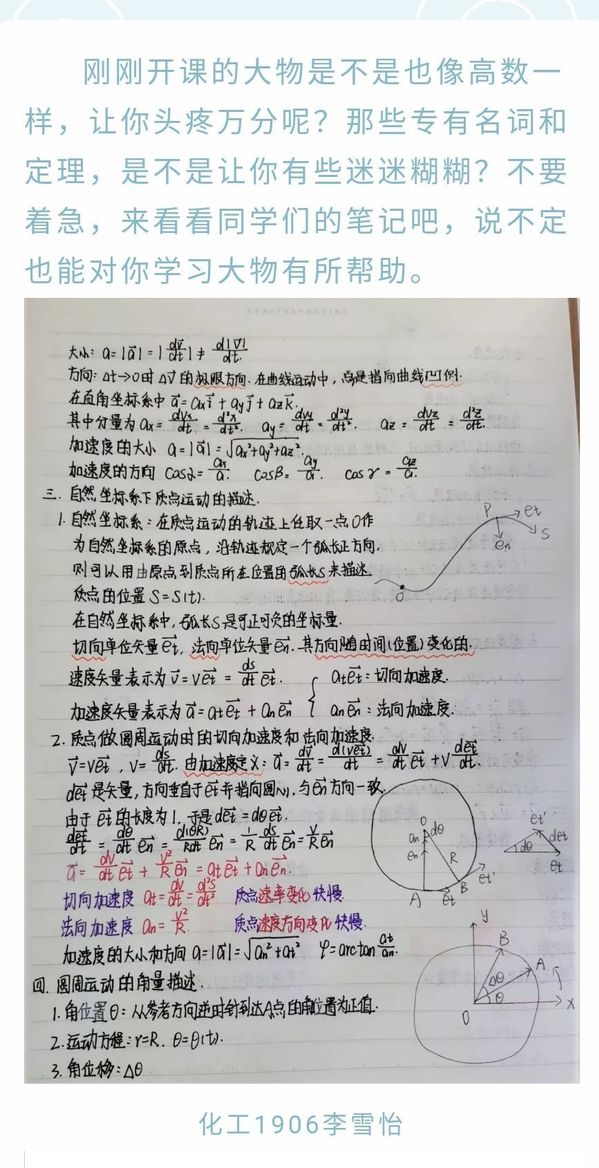 刚刚开课的大物是不是也像高数一
样，让你头疼万分呢？那些专有名词和
定理，是不是让你有些迷迷糊糊？不要
着急，来看看同学们的笔记吧，说不定
也能对你学习大物有所帮助。
大小: a=|a⃗|=|dv⃗/dt|≠d|v⃗|/dt.
方向: Δt→0时Δv⃗的极限方向. 在曲线运动中, 总是指向曲线凹侧.
在直角坐标系中 a⃗=axi⃗+ayj⃗+azk⃗.
其中分量为 ax=dvx/dt=d²x/dt². ay=dvy/dt=d²y/dt². az=dvz/dt=d²z/dt².
加速度的大小 a=|a⃗|=√(ax²+ay²+az²).
加速度的方向 cosα=ax/a. cosβ=ay/a. cosγ=az/a.
三. 自然坐标系下质点运动的描述.
1. 自然坐标系: 在质点运动的轨迹上任取一点O作
为自然坐标系的原点, 沿轨迹规定一个弧长正方向,
则可以用由原点到质点所在位置的弧长S来描述
质点的位置 S=S(t).
在自然坐标系中, 弧长S是可正可负的坐标量.
切向单位矢量et⃗, 法向单位矢量en⃗, 其方向随时间(位置)变化的.
速度矢量表示为 v⃗=vet⃗=ds/dt et⃗.
atet⃗: 切向加速度.
加速度矢量表示为 a⃗=atet⃗+anen⃗
anen⃗: 法向加速度.
P et en S O
2. 质点做圆周运动时的切向加速度和法向加速度.
v⃗=vet⃗, v=ds/dt. 由加速度定义: a⃗=dv⃗/dt=d(vet⃗)/dt=dv/dt et⃗+v det⃗/dt
det⃗是矢量, 方向垂直于et⃗并指向圆心, 与en⃗方向一致.
由于et⃗的长度为1, 于是det⃗=dθen⃗.
det⃗/dt=dθ/dt en⃗=d(θR)/Rdt en⃗=1/R ds/dt en⃗=v/R en⃗
a⃗=dv/dt et⃗+v²/R en⃗=atet⃗+anen⃗.
切向加速度 at=dv/dt=d²s/dt² 质点速率变化快慢.
法向加速度 an=v²/R 质点速度方向变化快慢.
加速度的大小和方向 a=|a⃗|=√(an²+at²) φ=arctan at/an.
O dθ an en R A et B et'
et' det dθ et
四. 圆周运动的角量描述.
1. 角位置θ: 从参考方向逆时针到达A点的角位置为正值.
2. 运动方程: r=R. θ=θ(t).
3. 角位移: Δθ
y B A Δθ θ O x
化工1906李雪怡